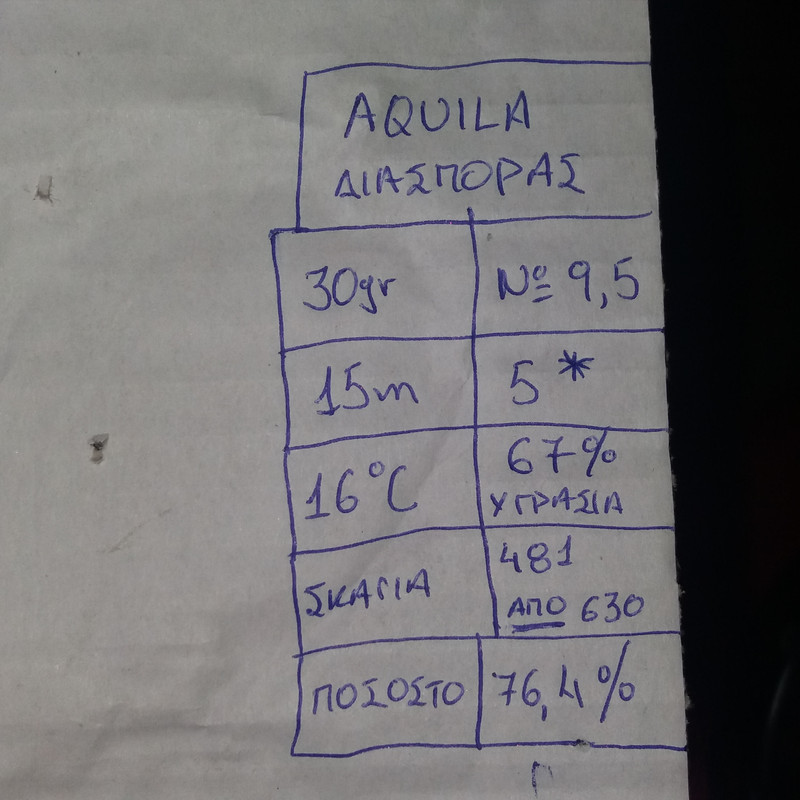 AQUILA
ΔΙΑΣΠΟΡΑΣ
30gr Nº 9,5
15m 5 *
16°C 67%
ΥΓΡΑΣΙΑ
ΣΚΑΓΙΑ 481
ΑΠΟ 630
ΠΟΣΟΣΤΟ 76,4%